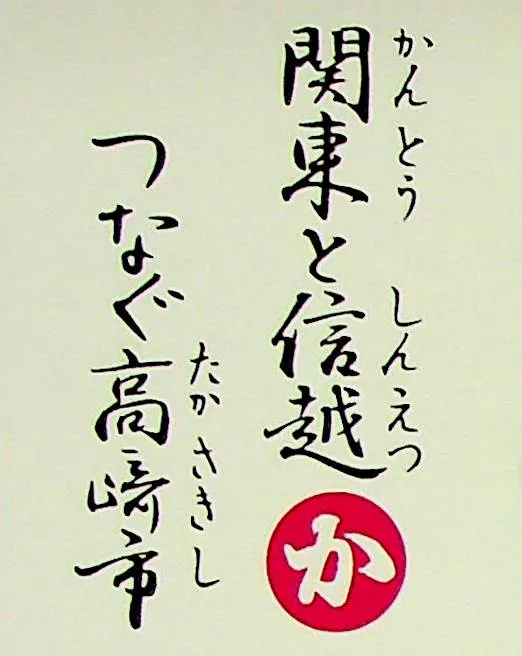 関東と信越
かんとう しんえつ
か
つなぐ高崎市
たかさきし